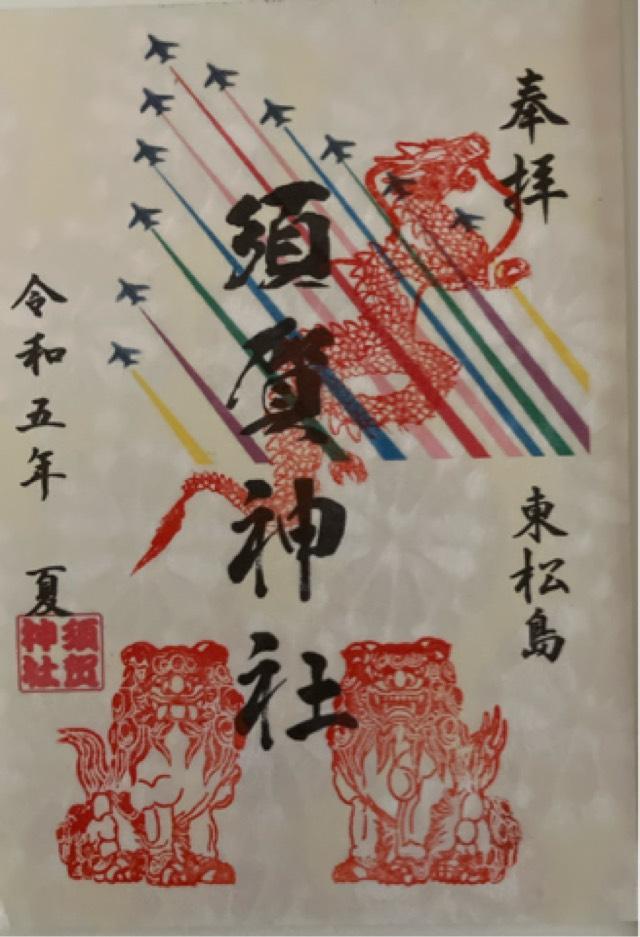 奉拝
東松島
須賀神社
令和五年 夏
須賀
神社